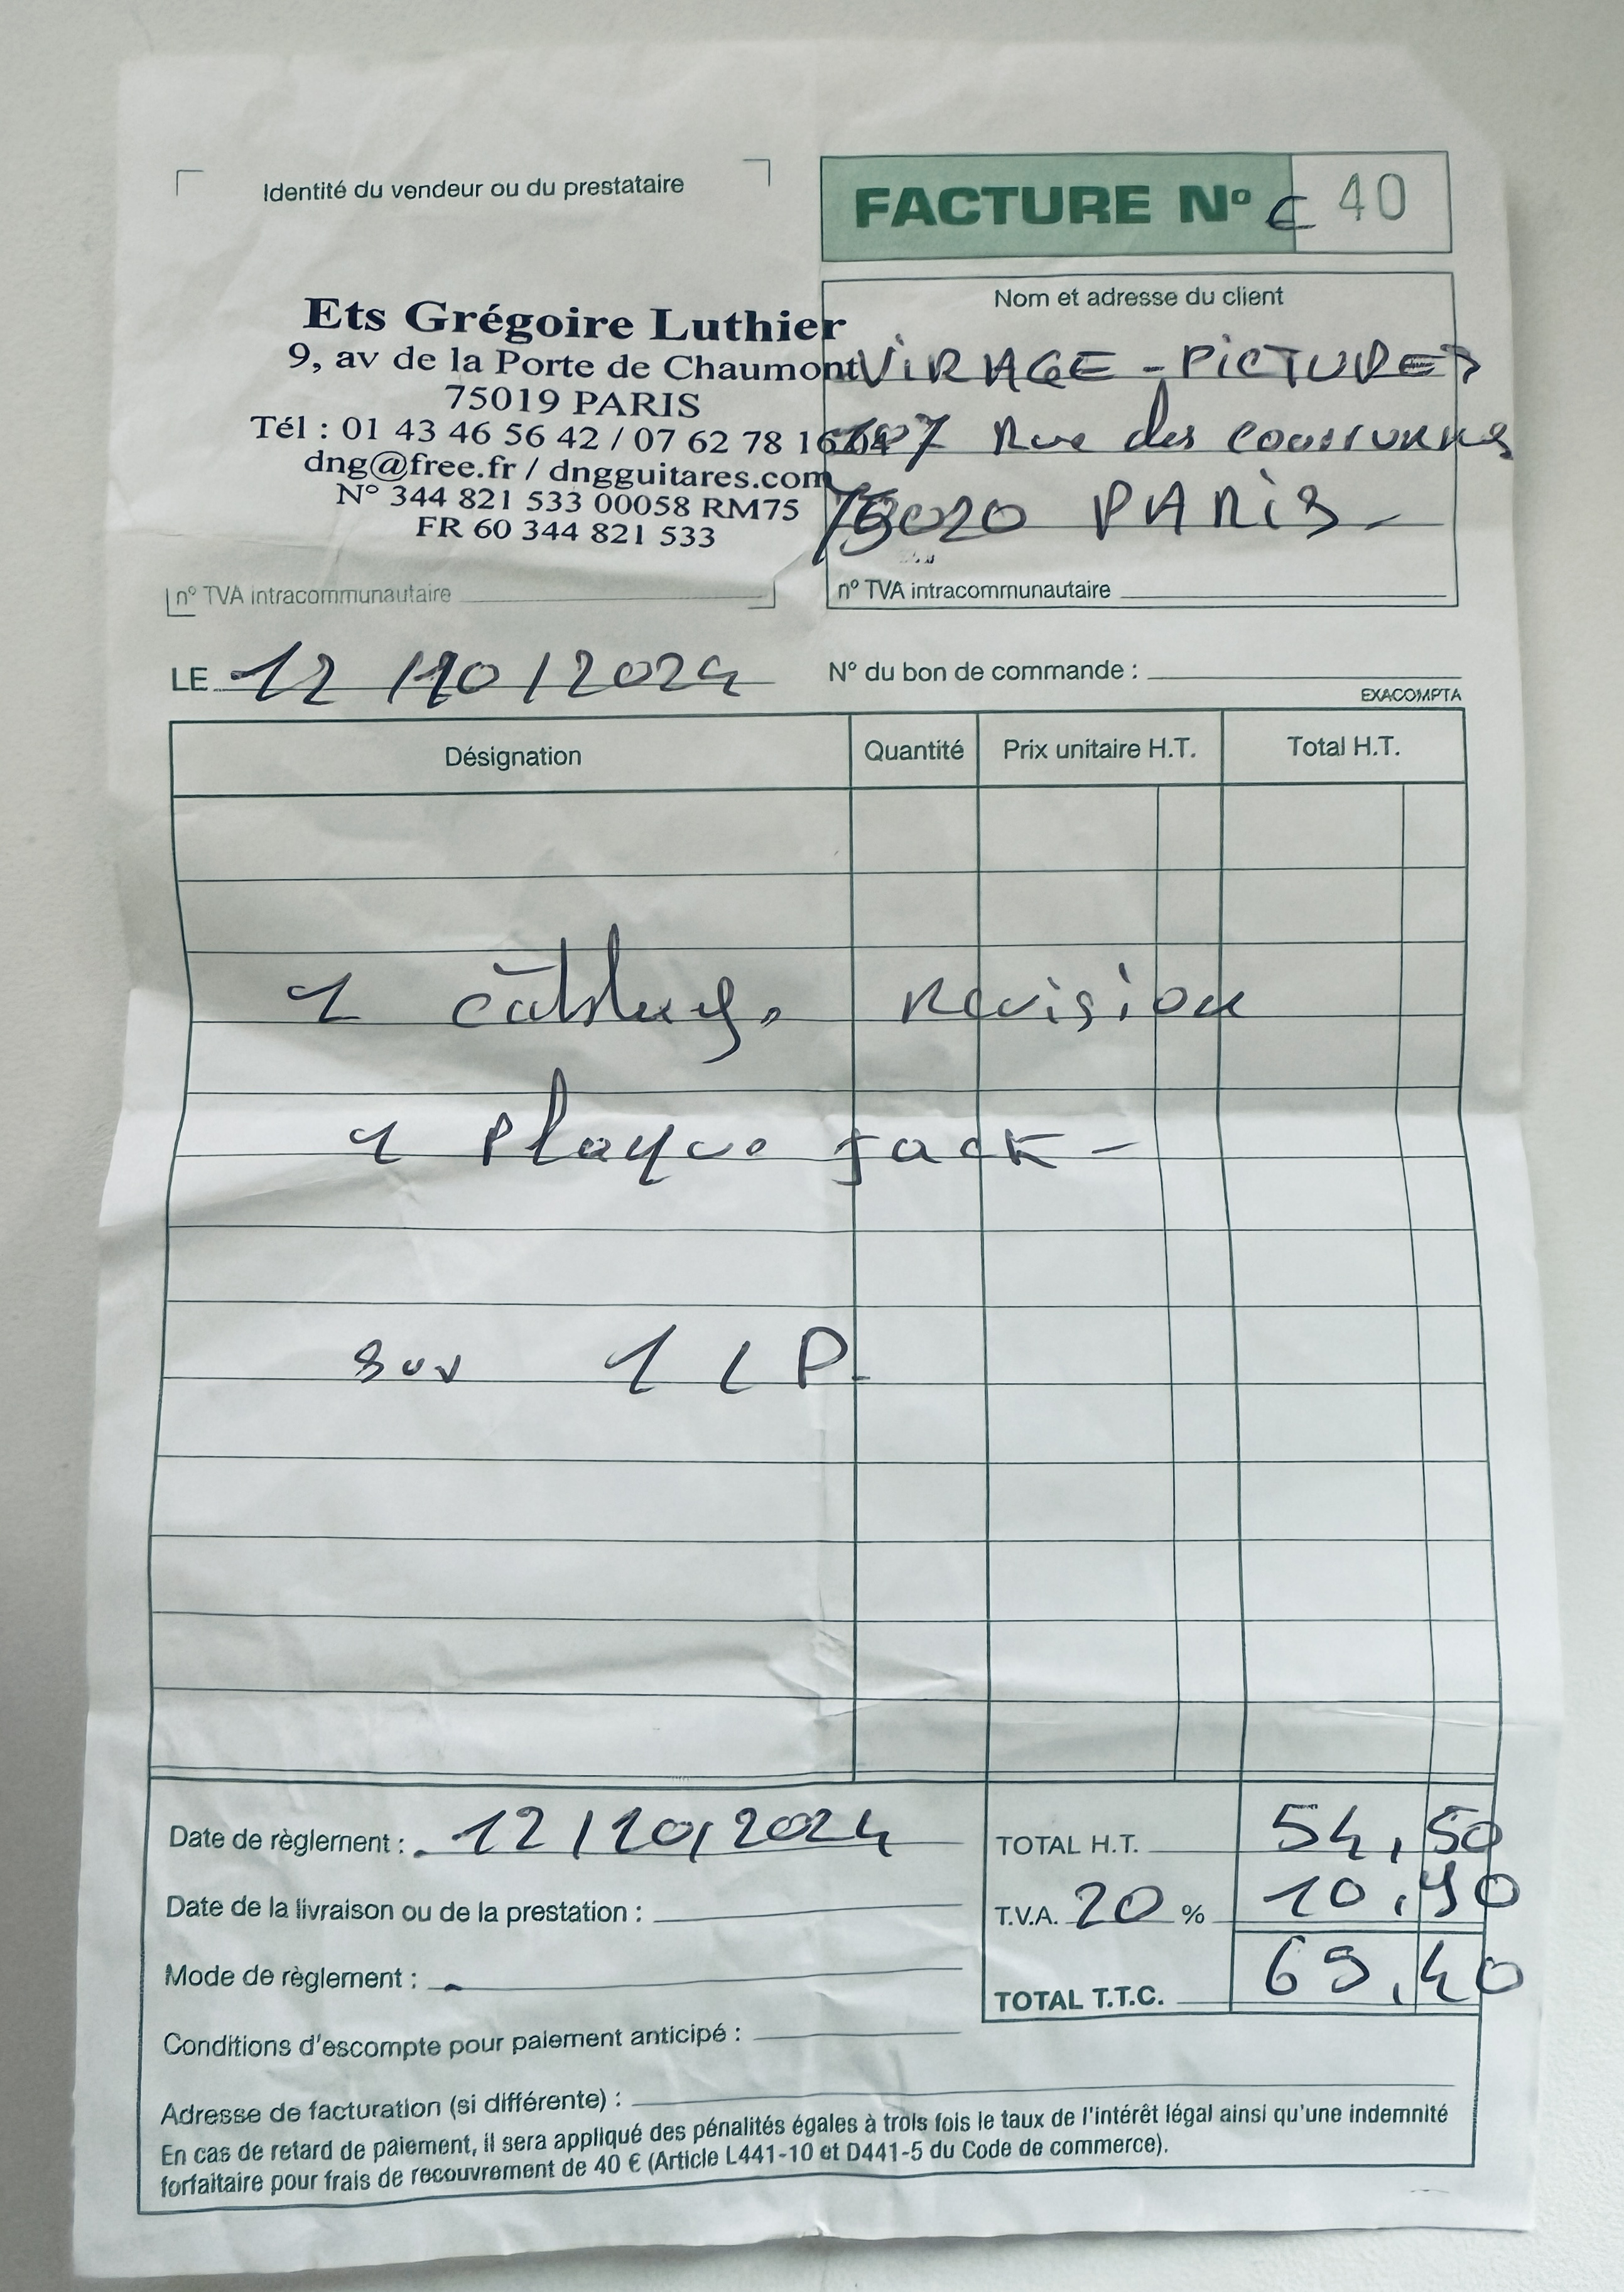 Identité du vendeur ou du prestataire
FACTURE N° C 40
Ets Grégoire Luthier
9, av de la Porte de Chaumont
75019 PARIS
Tél : 01 43 46 56 42 / 07 62 78
dng@free.fr / dngguitares.com
N° 344 821 533 00058 RM75
FR 60 344 821 533
n° TVA intracommunautaire
Nom et adresse du client
VIRAGE - PICTURES
Rue des
75020 PARIS -
n° TVA intracommunautaire
LE 12/10/2024
N° du bon de commande :
EXACOMPTA
Désignation Quantité Prix unitaire H.T. Total H.T.
1 révision
1 plaque jack -
sur 1 LP.
Date de règlement : 12/10/2024
Date de la livraison ou de la prestation :
Mode de règlement :
Conditions d'escompte pour paiement anticipé :
TOTAL H.T. 54,50
T.V.A. 20 % 10,90
TOTAL T.T.C. 65,40
Adresse de facturation (si différente) :
En cas de retard de paiement, il sera appliqué des pénalités égales à trois fois le taux de l'intérêt légal ainsi qu'une indemnité
forfaitaire pour frais de recouvrement de 40 € (Article L441-10 et D441-5 du Code de commerce).